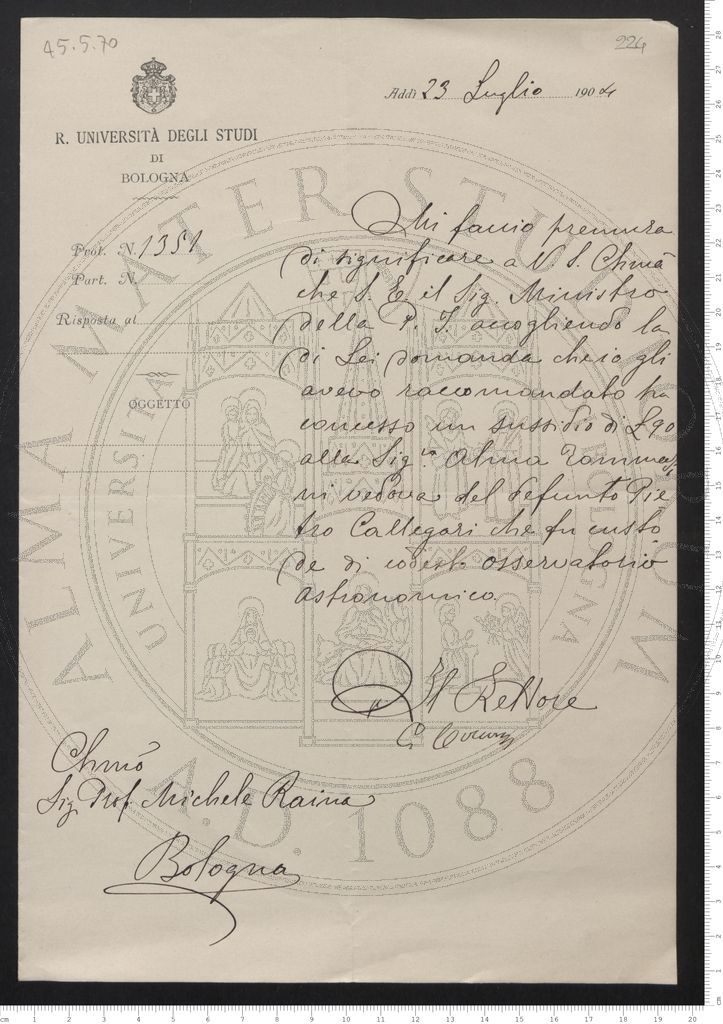 45.5.70
224
Addì 23 Luglio 1904
R. UNIVERSITÀ DEGLI STUDI
DI
BOLOGNA
Prot. N. 1351
Part. N.
Risposta al
OGGETTO
Mi faccio premura
di significare a V. S. Chma
che S. E. il Sig. Ministro
della P. I. accogliendo la
di Lei domanda che io gli
avevo raccomandato ha
concesso un sussidio di L 90
alla Sig.ra Alma Tommasi
ni vedova del defunto Pie
tro Callegari che fu custo
de di codesto osservatorio
astronomico.
Il Rettore
Chmo
Sig. Prof. Michele Rajna
Bologna
ALMA MATER STUDIORUM
A.D. 1088